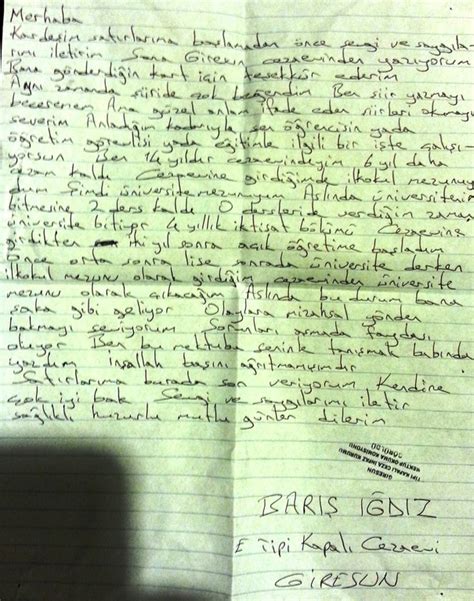 Merhaba
Kardeşim satırlarıma başlamadan önce sevgi ve saygıla
rımı iletirim Sana Giresun cezaevinden yazıyorum
Bana gönderdiğin kart için teşekkür ederim
Aynı zamanda şiiride çok beğendim Ben şiir yazmayı
beceremem Ama güzel anlam ifade eden şiirleri okumayı
severim Anladığım kadarıyla sen öğrencisin yada
öğretim görevlisi yada eğitimle ilgili bir işte çalışı-
yorsun Ben 14 yıldır cezaevindeyim 6 yıl daha
cezam kaldı Cezaevine girdiğimde ilkokul mezunuy
dum Şimdi üniversite mezunuyum Aslında üniversitenin
bitmesine 2 ders kaldı O dersleride verdiğim zaman
üniverside bitiyor 4 yıllık iktisat bölümü Cezaevine
girdikten iki yıl sonra açık öğretime başladım
Önce orta sonra lise sonrada üniversite derken
ilkokul mezunu olarak girdiğim cezaevinden üniversite
mezunu olarak çıkacağım Aslında bu durum bana
şaka gibi geliyor Olaylara mizahsal yönden
bakmayı seviyorum Sorunları aşmada faydası
oluyor Ben bu mektubu seninle tanışmak babında
yazdım inşallah başını ağrıtmamışımdır
Satırlarıma burada son veriyorum Kendine
çok iyi bak Sevgi ve saygılarımı iletir
sağlıklı huzurlu mutlu günler dilerim
GİRESUN
TİPİ KAPALI CEZA İNFAZ KURUMU
MEKTUP OKUMA KOMİSYONU
GÖRÜLDÜ
BARIŞ IĞDIZ
E Tipi Kapalı Cezaevi
GİRESUN